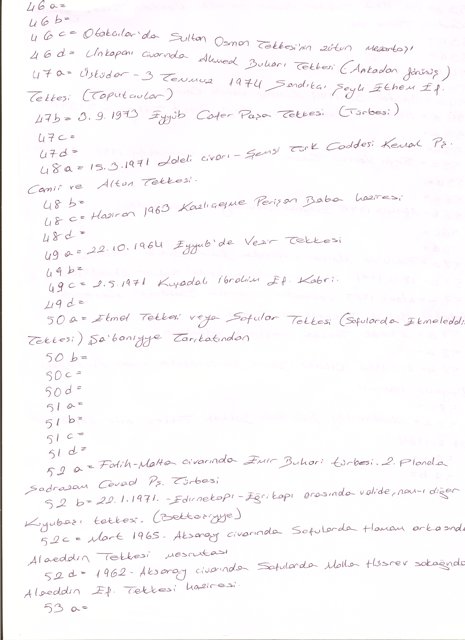 46 a=
46 b=
46 c= Otakcılar'da Sultan Osman Tekkesi'nin bütün mezarlığı
46 d= Unkapanı civarında Ahmed Buharî Tekkesi (Arkadan görünüş)
47 a= Üsküdar - 3 Temmuz 1974 Sandıkçı Şeyh Ethem Ef.
Tekkesi (Toputaular)
47 b= 3.9.1973 Eyyüb Cafer Paşa Tekkesi (Türbesi)
47 c=
47 d=
48 a= 15.3.1971 Laleli civarı - Şemsi Türk Caddesi Kemal Pş.
Camii ve Altun Tekkesi.
48 b=
48 c= Haziran 1963 Kazlıçeşme Perişan Baba haziresi
48 d=
49 a= 22.10.1964 Eyyub'de Vezir Tekkesi
49 b=
49 c= 2.5.1971 Kuşadalı İbrahim Ef. Kabri.
49 d=
50 a= Etmel Tekkesi veya Sofular Tekkesi (Sofularda Ekmeleddi
Tekkesi) Şa'baniyye Tarikatından
50 b=
50 c=
50 d=
51 a=
51 b=
51 c=
51 d=
52 a= Fatih-Malta civarında Emir Buhari türbesi. 2. Planda
Sadrazam Cevad Pş. Türbesi
52 b= 22.1.1971. - Edirnekapı - Eğrikapı arasında valide, nam-ı diğer
Kuyubaşı tekkesi. (Bektaşiyye)
52 c= Mart 1965. Aksaray civarında Sofularda Hamam arkasında
Alaeddin Tekkesi meşrutası
52 d= 1962- Aksaray civarında Sofularda Molla Hüsrev sokağında
Alaeddin Ef. Tekkesi haziresi
53 a=